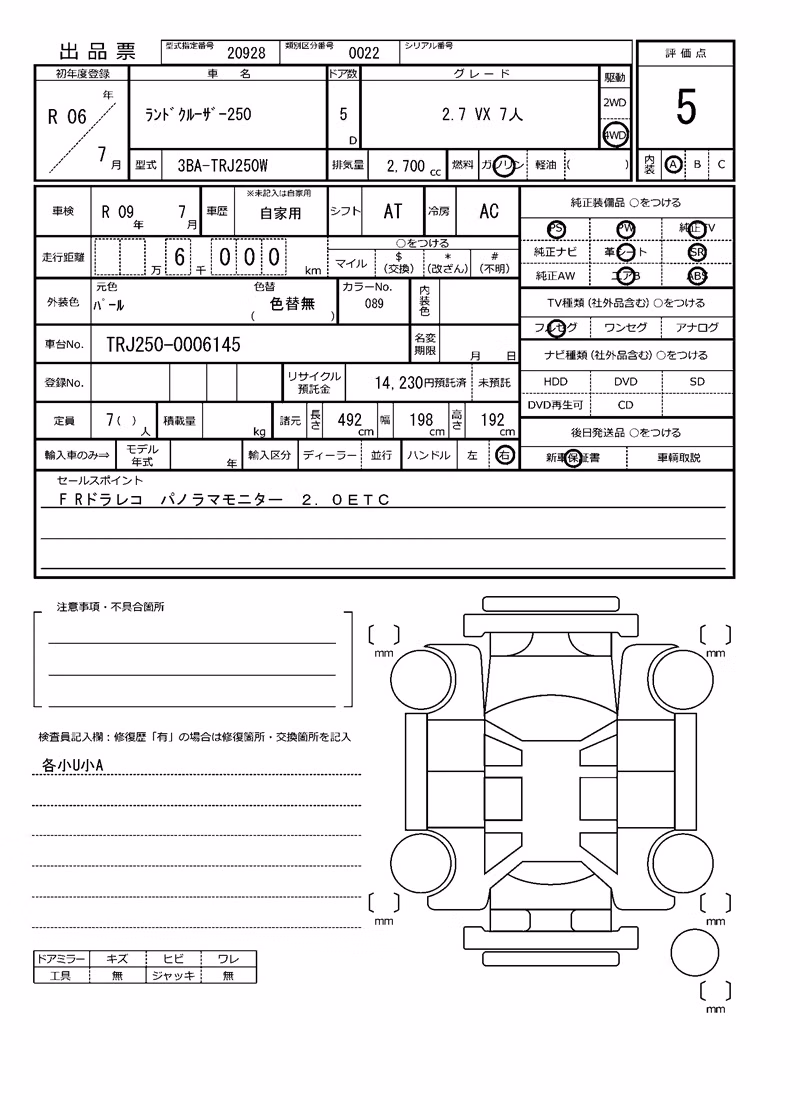 出品票 型式指定番号 20928 類別区分番号 0022 シリアル番号
評価点
初年度登録 車名 ドア数 グレード 駆動
R 06 年 7 月 ランドクルーザー250 5 D 2.7 VX 7人 2WD 4WD
5
型式 3BA-TRJ250W 排気量 2,700 cc 燃料 ガソリン 軽油 ( )
内装 A B C
車検 R 09 年 7 月 車歴 ※未記入は自家用 自家用 シフト AT 冷房 AC
走行距離 万 6 千 0 0 0 km ○をつける
マイル $ (交換) * (改ざん) # (不明)
外装色 元色 パール 色替 色替無 ( ) カラーNo. 089 内装色
車台No. TRJ250-0006145 名変期限 月 日
登録No. リサイクル預託金 14,230円預託済 未預託
定員 7( ) 人 積載量 kg 諸元 長さ 492 cm 幅 198 cm 高さ 192 cm
輸入車のみ⇒ モデル年式 年 輸入区分 ディーラー 並行 ハンドル 左 右
純正装備品 ○をつける
PS PW 純正TV
純正ナビ 革シート SR
純正AW エアB ABS
TV種類(社外品含む) ○をつける
フルセグ ワンセグ アナログ
ナビ種類(社外品含む) ○をつける
HDD DVD SD
DVD再生可 CD
後日発送品 ○をつける
新車保証書 車輌取説
セールスポイント
FRドラレコ パノラマモニター 2.0ETC
注意事項・不具合箇所
mm mm
検査員記入欄：修復歴「有」の場合は修復箇所・交換箇所を記入
各小U小A
mm mm
ドアミラー キズ ヒビ ワレ
工具 無 ジャッキ 無
mm